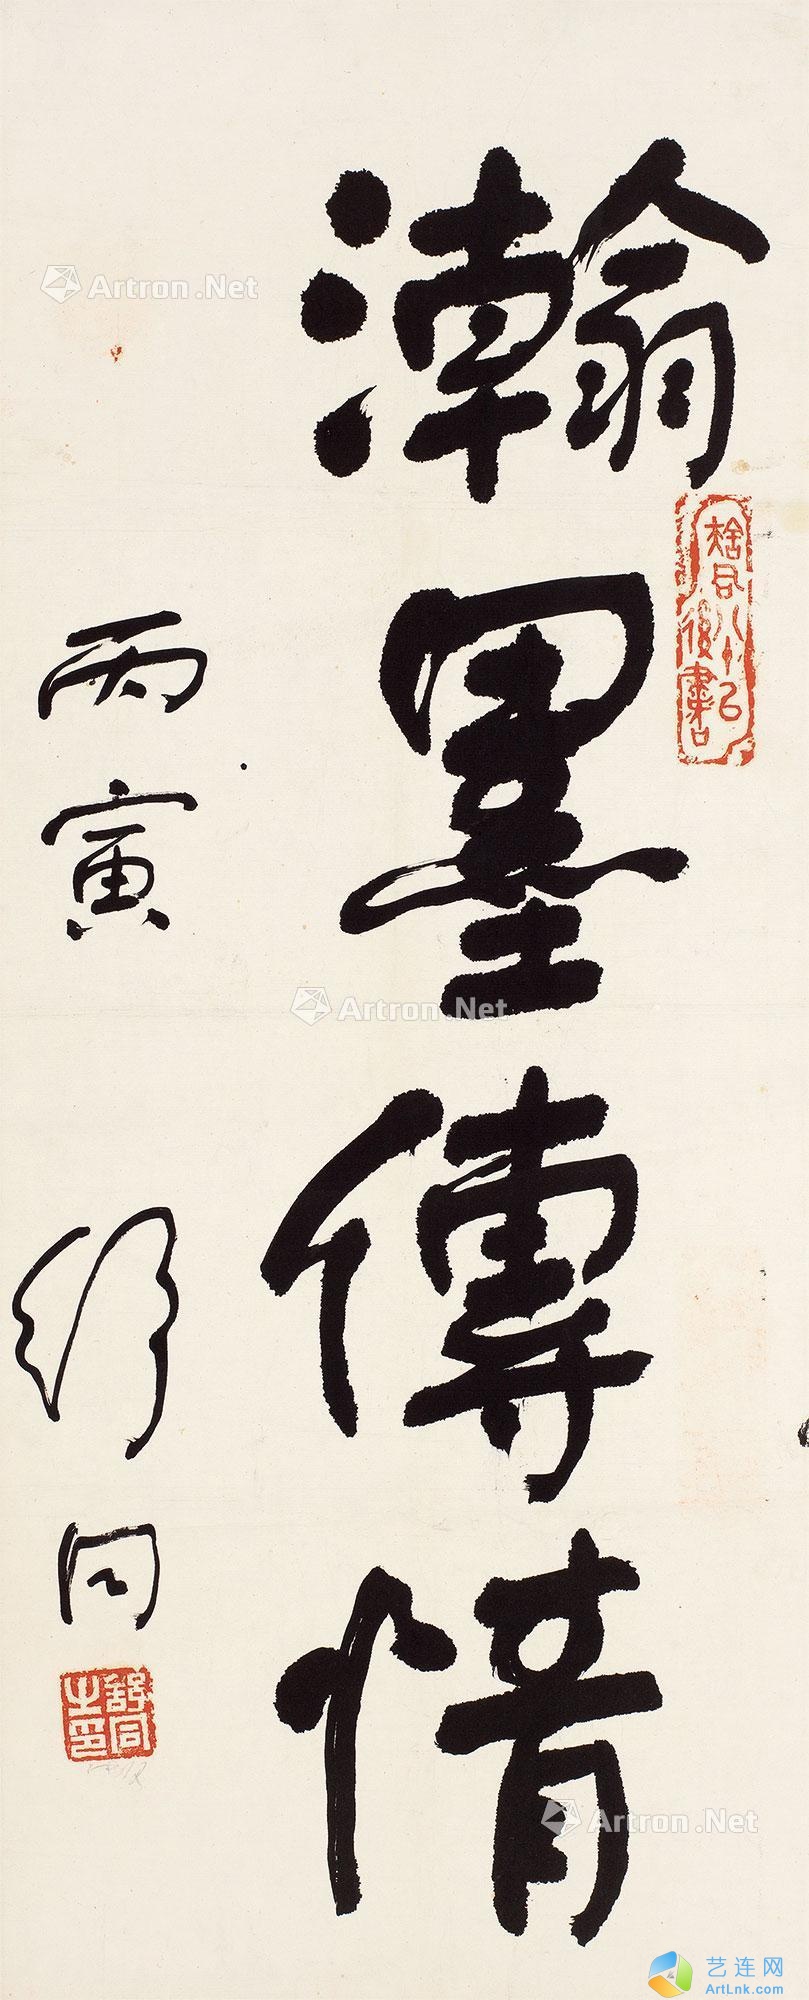 瀚墨傳情
丙寅 舒同
舒同之印
Artron.Net
Artron.Net
Artron.Net
Artron.Net
艺连网
ArtLnk.com